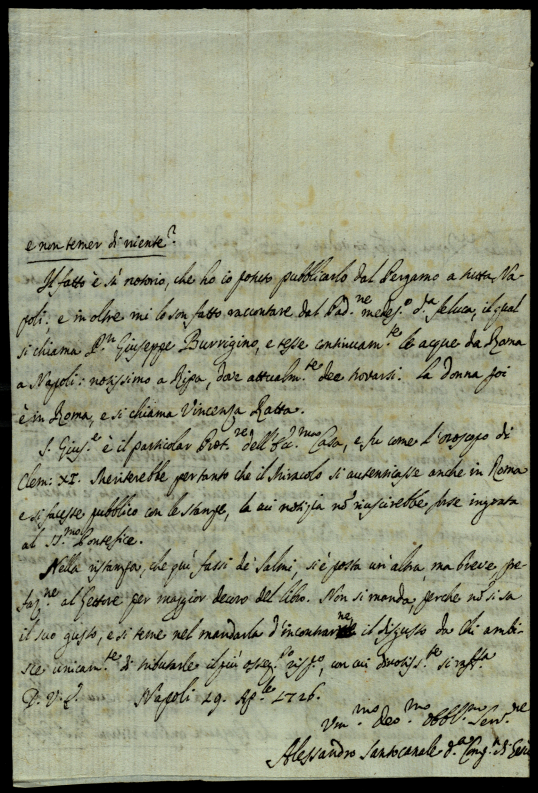 e non temer di niente?
Il fatto è sì notorio, che ho io potuto pubblicarlo dal Pergamo a tutta Na-
poli; e in oltre mi lo son fatto raccontare dal Pad.ne med.mo d.a feluca, il qual
si chiama P.n Giuseppe Burrigino, e tesse continuam.te le acque da Roma
a Napoli: notissimo a Ripa, dove attualm.te dee trovarsi. La donna poi
è in Roma, e si chiama Vincenza Ratta.
S. Gius.e è il particolar Prot.re dell'Ecc.ma Casa, e fu come l'oroscopo di
Clem: XI. Meriterebbe pertanto che il Miracolo si autenticasse anche in Roma
e si facesse pubblico con le stampe, la cui notizia nō riuscirebbe forse ingrata
al SS.mo Pontefice.
Nella ristampa, che quí fassi de' Salmi, si è posta un'altra, ma breve pre-
faz.ne al Lettore per maggior decoro del libro. Non si manda, perche nō si sa
il suo gusto, e si teme nel mandarla d'incontrarne il disgusto da chi ambi-
sce unicam.te di tributarle il più osseq.o risp.o, con cui devotiss.te si raff.a
D. V. E. Napoli 29. Ag.to 1726.
Um.mo Deo.mo Obbl.mo Serv.re
Alessandro Santocanale d.a Comp.a di Gesù